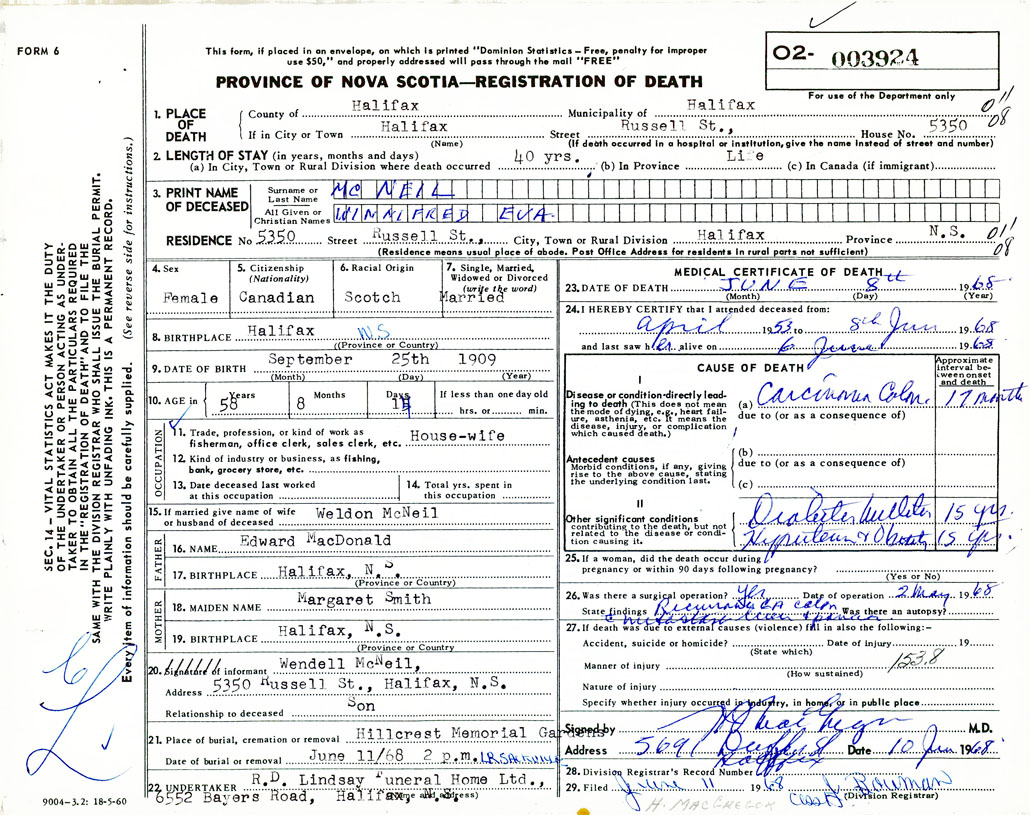 FORM 6
This form, if placed in an envelope, on which is printed "Dominion Statistics – Free, penalty for improper
use $50," and properly addressed will pass through the mail "FREE"
PROVINCE OF NOVA SCOTIA—REGISTRATION OF DEATH
O2- 003924
For use of the Department only
1. PLACE OF DEATH
County of Halifax Municipality of Halifax 011
If in City or Town Halifax Street Russell St., House No. 5350 08
(Name) (If death occurred in a hospital or institution, give name instead of street and number)
2. LENGTH OF STAY (in years, months and days)
(a) In City, Town or Rural Division where death occurred 40 yrs. (b) In Province Life (c) In Canada (if immigrant)
3. PRINT NAME OF DECEASED
Surname or Last Name MC NEIL
All Given or Christian Names WINNIFRED EVA
RESIDENCE No 5350 Street Russell St., City, Town or Rural Division Halifax Province N.S. 011
(Residence means usual place of abode. Post Office Address for residents in rural parts not sufficient) 08
4. Sex Female
5. Citizenship (Nationality) Canadian
6. Racial Origin Scotch
7. Single, Married, Widowed or Divorced (write the word) Married
8. BIRTHPLACE Halifax N.S
(Province or Country)
9. DATE OF BIRTH September 25th 1909
(Month) (Day) (Year)
10. AGE in Years 58 Months 8 Days If less than one day old hrs. or min.
OCCUPATION
11. Trade, profession, or kind of work as
fisherman, office clerk, sales clerk, etc. House-wife
12. Kind of industry or business, as fishing,
bank, grocery store, etc.
13. Date deceased last worked
at this occupation
14. Total yrs. spent in
this occupation
15. If married give name of wife
or husband of deceased Weldon McNeil
FATHER
16. NAME Edward MacDonald
17. BIRTHPLACE Halifax, N.S.
(Province or Country)
MOTHER
18. MAIDEN NAME Margaret Smith
19. BIRTHPLACE Halifax, N.S.
(Province or Country)
20. Signature of informant Wendell McNeil,
Address 5350 Russell St., Halifax, N.S.
Relationship to deceased Son
21. Place of burial, cremation or removal Hillcrest Memorial Gardens
Date of burial or removal June 11/68 2 p.m.
22. UNDERTAKER R.D. Lindsay Funeral Home Ltd.,
6552 Bayers Road, Halifax, N.S.
(Name and address)
MEDICAL CERTIFICATE OF DEATH
23. DATE OF DEATH JUNE 8th 1968
(Month) (Day) (Year)
24. I HEREBY CERTIFY that I attended deceased from:
April 1953 to 8th Jun 1968
and last saw her alive on 6 June 1968
CAUSE OF DEATH
Approximate interval between onset and death
I
Disease or condition directly leading to death (This does not mean the mode of dying, e.g., heart failure, asthenia, etc. It means the disease, injury, or complication which caused death.)
(a) Carcinoma Colon. 17 months
due to (or as a consequence of)
Antecedent causes
Morbid conditions, if any, giving rise to the above cause, stating the underlying condition last.
(b)
due to (or as a consequence of)
(c)
II
Other significant conditions
contributing to the death, but not related to the disease or condition causing it.
Diabetes Mellitus 15 yrs.
Hypertension & Obesity 15 yrs.
25. If a woman, did the death occur during
pregnancy or within 90 days following pregnancy?
(Yes or No)
26. Was there a surgical operation? Yes Date of operation 2 May 1968
State findings colon Was there an autopsy?
27. If death was due to external causes (violence) fill in also the following:–
Accident, suicide or homicide? Date of injury 19
(State which)
Manner of injury 153.8
(How sustained)
Nature of injury
Specify whether injury occurred in industry, in home, or in public place
Signed by M.D.
Address 5691 Halifax Date 10 Jun 1968
28. Division Registrar's Record Number
29. Filed June 11 1968 Bowman
(Division Registrar)
H. MACGREGOR
SEC. 14 – VITAL STATISTICS ACT MAKES IT THE DUTY
OF THE UNDERTAKER OR PERSON ACTING AS UNDER-
TAKER TO OBTAIN ALL THE PARTICULARS REQUIRED
IN THE "REGISTRATION OF DEATH" AND TO FILE THE
SAME WITH THE DIVISION REGISTRAR WHO SHALL ISSUE THE BURIAL PERMIT.
WRITE PLAINLY WITH UNFADING INK. THIS IS A PERMANENT RECORD.
Every item of information should be carefully supplied. (See reverse side for instructions.)
9004–3.2: 18-5-60